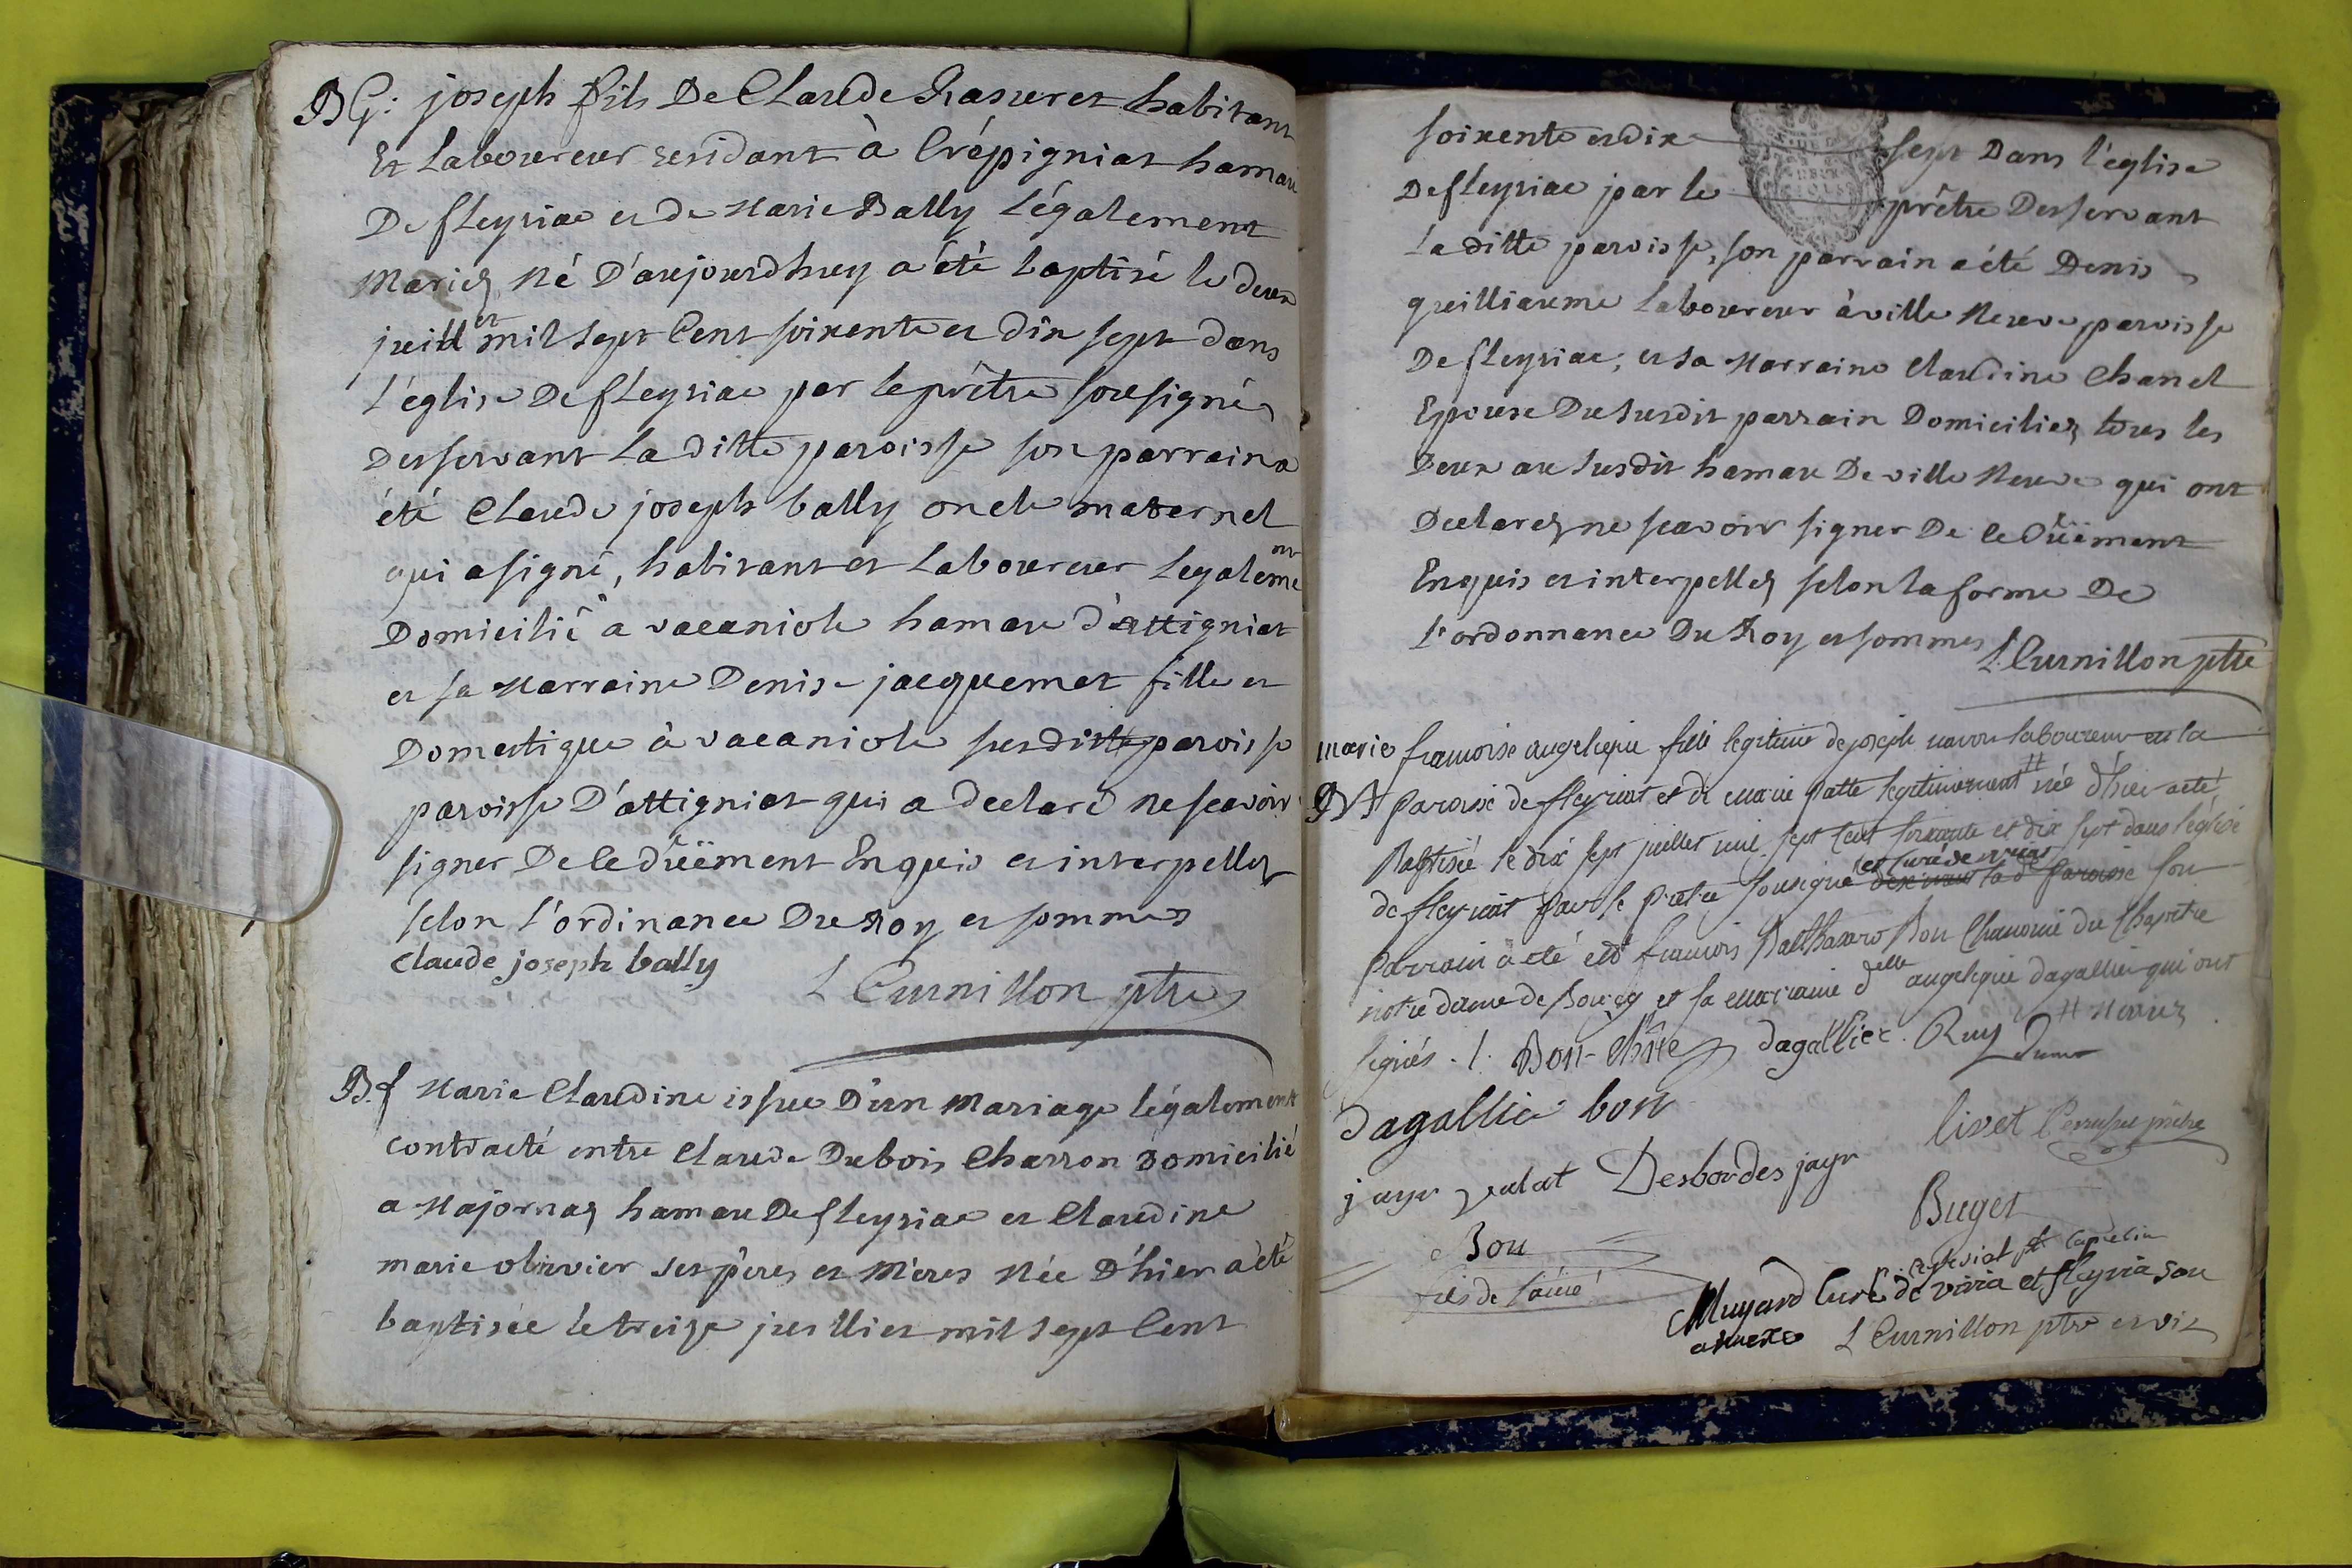 BG: joseph fils De Claude Rasurer habitant
Et Laboureur residant à Crépigniat hamau
De fleyriac et de Marie Bally Légalement
Mariez Né D'aujourdhuy a été baptisé le deux
juillet mil sept Cent soixente et dix sept dans
L'église De fleyriac par le prêtre sousigné
Desservant La ditte paroisse son parrain a
été Claude joseph bally oncle maternel
qui a signé, habitant et Laboureur Legalement
Domicilié a vacaniole hamau d'attigniat
et sa Marraine Denise jacquemet fille et
Domestique à vacaniole susditte paroisse
paroisse D'attigniat qui a declaré ne scavoir
signer De ce düëment Enquis et interpellez
selon l'ordinance Du Roy et sommez
Claude joseph bally
L Curnillon ptre
B.f Marie Claudine issue D'un Mariage légalement
contracté entre Claude Dubois Charron Domicilié
a Majornaz hamau De fleyriac et Claudine
marie olivier ses pères et Meres Née D'hier a été
baptisée le treize juillier mil sept Cent
soixente et dix sept Dans l'église
De fleyriac par le prêtre Desservant
La ditte paroisse, son parrain a été Denis
guilliaume Laboureur à ville Neuve paroisse
De fleyriac, et sa Marraine Claudine Chanel
Epouse Du susdit parrain Domiciliez tous les
Deux au susdit hamau De ville Neuve qui ont
Declarez ne scavoir signer De ce Düëment
Enquis et interpellez selon la forme De
L'ordonnance Du Roy et sommes
L. Curnillon ptre
marie francoise angelique fille legitime de joseph laboureur en la
paroisse de fleyriat et de marie patte legitimement # née d'hier a été
Baptisée le dix sept juillet mil sept cent soixante et dix sept dans l'église
de fleyriat par le prêtre sousigné et curé de viriat desservant la de paroisse son
parrain a été francois Balthazard Bon Chanoine du Chapitre
notre dame de Bourg et sa marraine delle angelique dagallier qui ont
signés. # Mariez
Bon-Chne dagallier. Ruy
Dagallier bon
livet prêtre
jayr Desbordes jayr
Buget
Bon
fils de l'ainé
capucin
Muyard Curé de viria et fleyria son
annexe L Curnillon ptre et vic